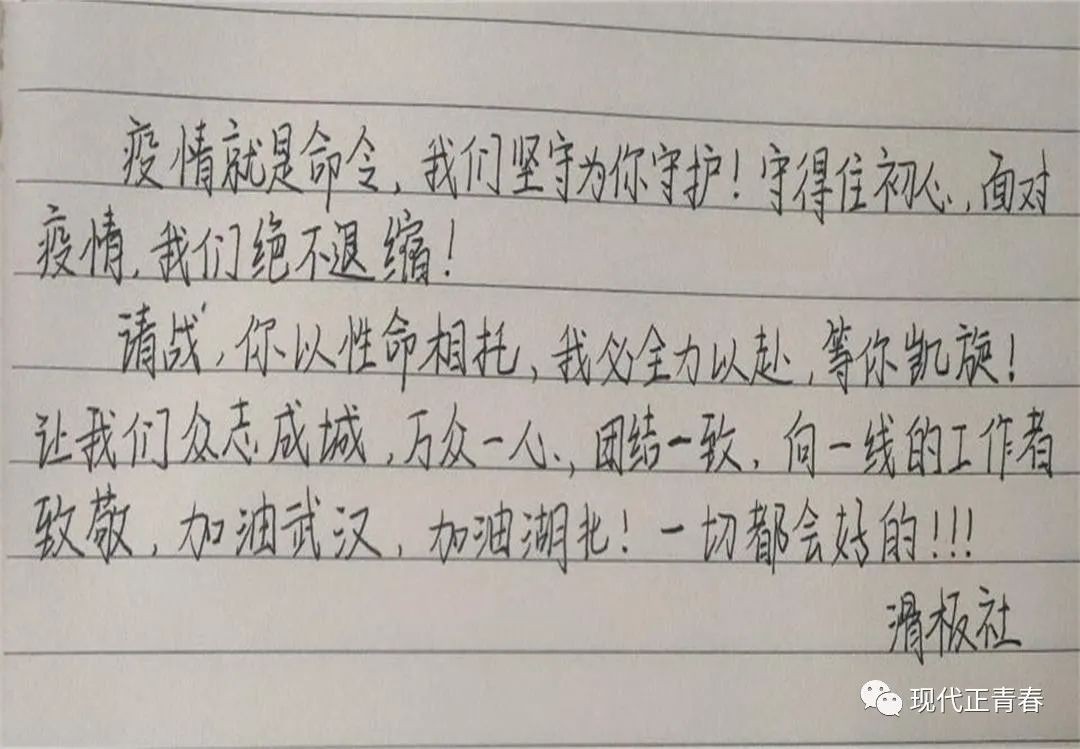 疫情就是命令，我们坚守为你守护！守得住初心，面对
疫情，我们绝不退缩！
请战，你以性命相托，我必全力以赴，等你凯旋！
让我们众志成城，万众一心，团结一致，向一线的工作者
致敬，加油武汉，加油湖北！一切都会好的！！！
滑板社
现代正青春